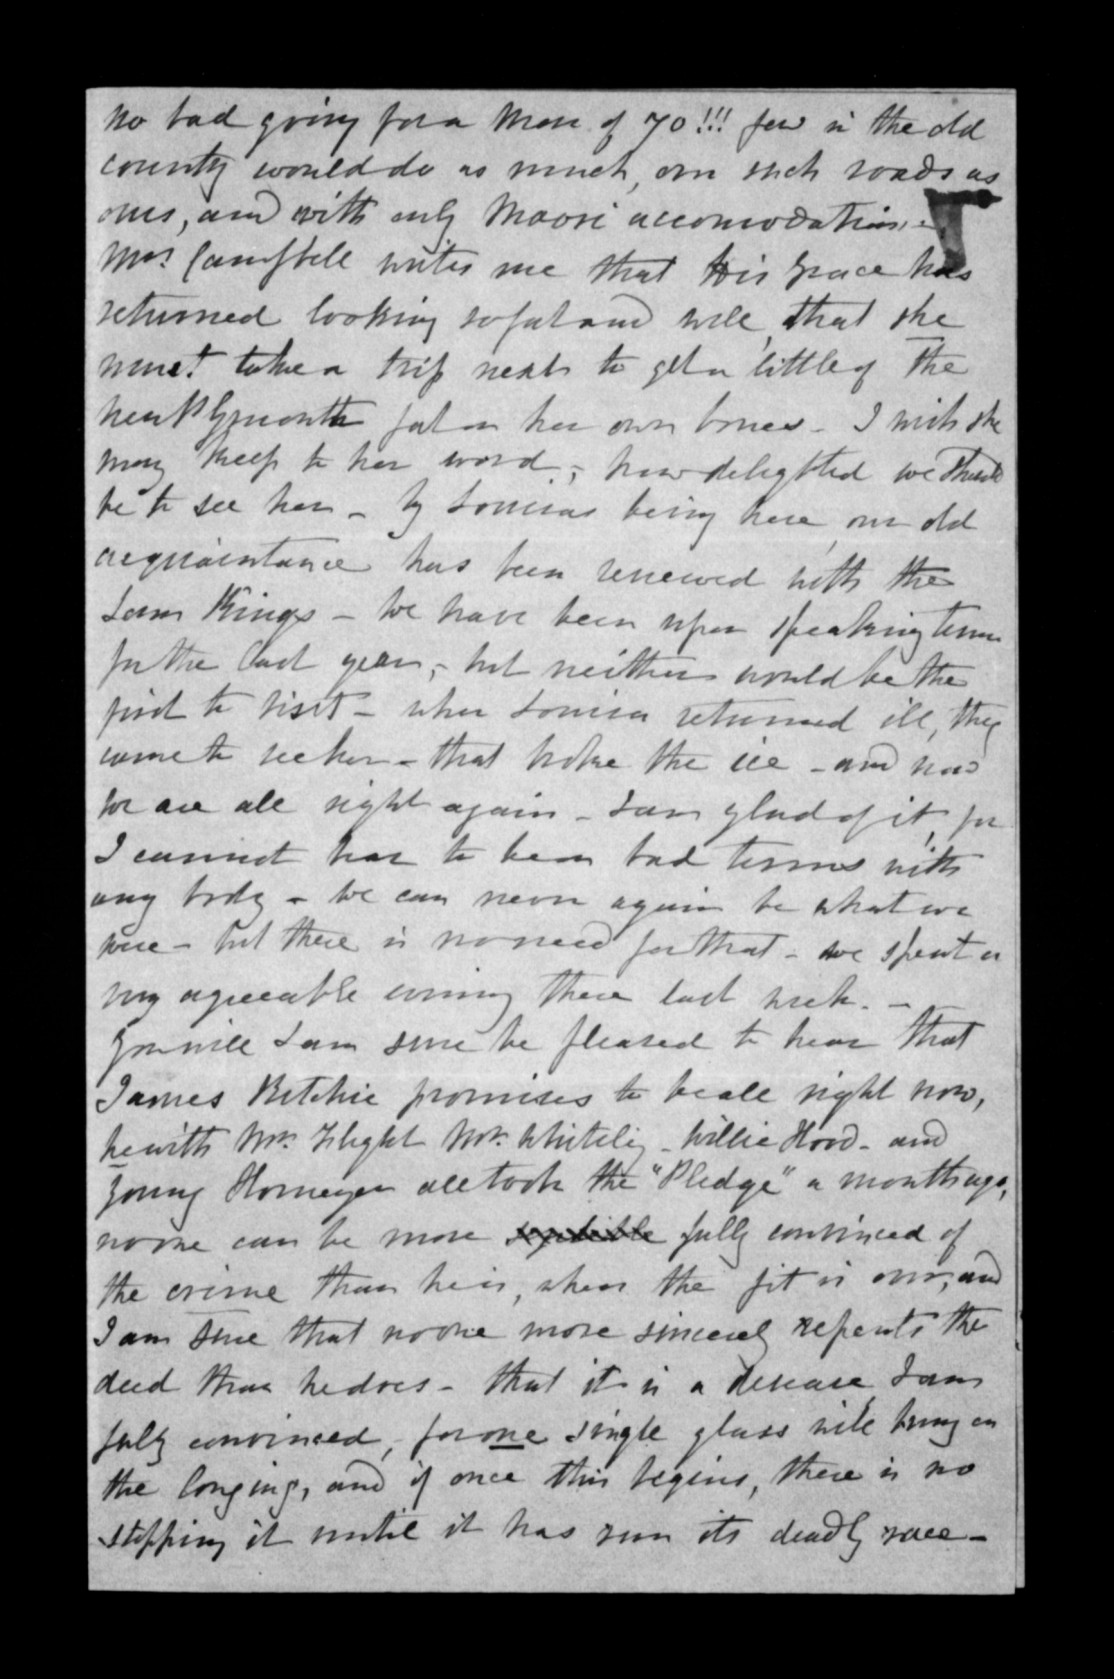 No bad going for a Man of 70!!! few in the old
country would do as much, on such roads as
ours, and with only Maori accomodation.
Mrs. Campbell writes me that His Grace has
returned looking so fat and well, that she
must take a trip next to get a little of the
New Plymouth fat on her own bones - I wish she
may keep to her word, how delighted we should
be to see her - By Louisas being here, our old
acquaintance has been renewed with the
Sam Kings - We have been upon speaking terms
for the last year, - but neither would be the
first to visit - when Louisa returned ill, they
came to see her - that broke the ice - and now
we are all right again - I am glad of it, for
I cannot bear to be on bad terms with
any body - We can never again be what we
were - but there is no need for that - we spent a
very agreeable evening there last week. -
You will I am sure be pleased to hear that
James Ritchie promises to be all right now,
he with Mr. Flight Mr. Whiteley - Willie Hood - and
young Homeyer all took the "Pledge" a month ago,
no one can be more fully convinced of
the crime than he is, when the fit is over, and
I am sure that no one more sincerely repents the
deed than he does - that it is a disease, I am
fully convinced, for one single glass will bring on
the longing, and if once this begins, there is no
stopping it until it has run its deadly race -